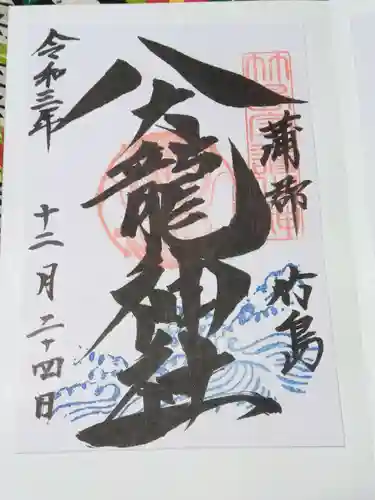 蒲郡
竹島
八大龍神社
令和三年
十二月二十四日